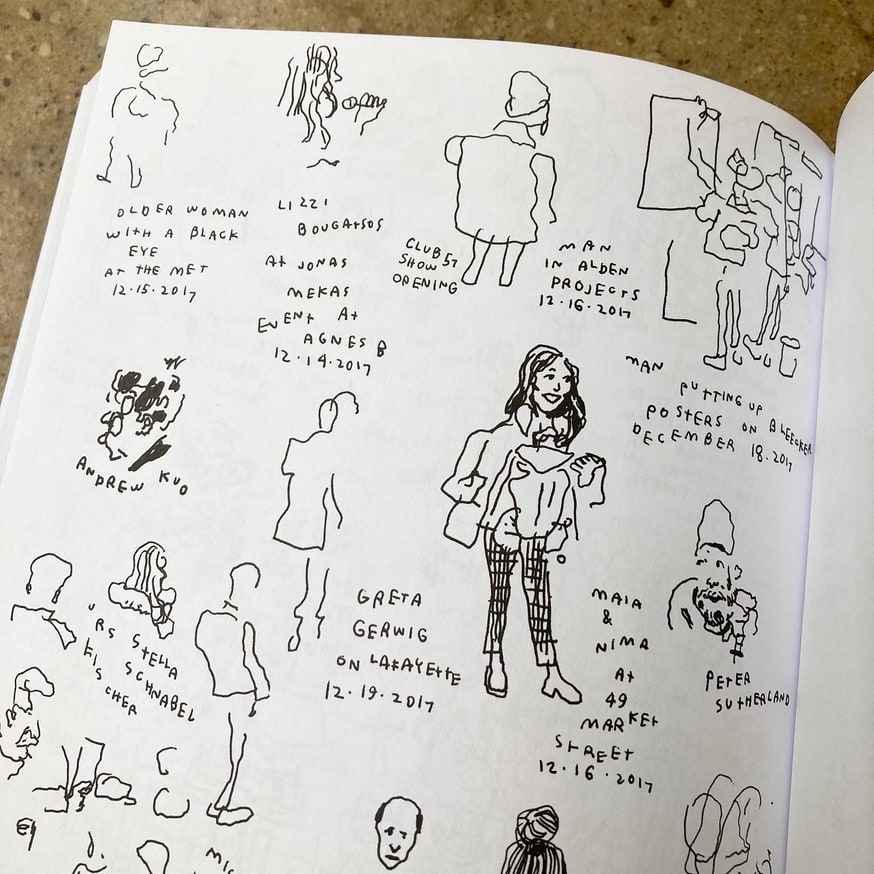 OLDER WOMAN
WITH A BLACK
EYE
AT THE MET
12.15.2017
LIZZI
BOUGATSOS
At JONAS
MEKAS
EVENt At
AGNES B
12.14.2017
CLUB 57
SHOW
OPENING
MAN
IN ALDEN
PROJECTS
12.16.2017
MAN
PUTTING UP
POSTERS ON BLEECKER
DECEMBER 18.2017
ANDREW KUO
GRETA
GERWIG
ON LAFAYETTE
12.19.2017
MAIA
&
NIMA
At
49
MARKEt
StREET
12.16.2017
PETER
SUTHERLAND
URS
FISCHER
StELLA
SCHNABEL